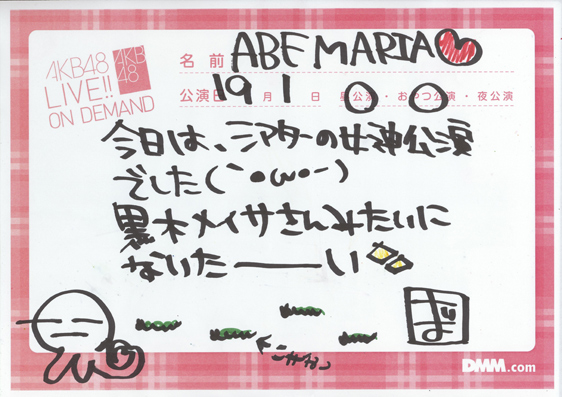 AKB48
LIVE!!
ON DEMAND
AKB
48
名前 ABE MARIA
公演日 19 月 1 日 昼公演・おやつ公演・夜公演
今日は、シアターの女神公演
でした(｀・ω・−)
黒木メイサさんみたいに
なりたーーい
DMM.com